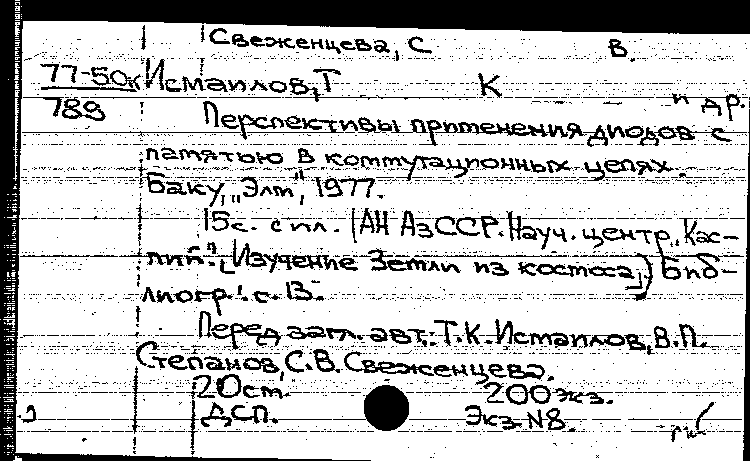 Свеженцева, С В.
77-50к Исмаилов, Т К
789 и др.
Перспективы применения диодов с
памятью в коммутационных цепях.
Баку, "Элм", 1977.
15с. с ил. (АН АзССР. Науч. центр "Кас-
пий". [Изучение Земли из космоса]) Биб-
лиогр.: с. 13.
Перед загл. авт.: Т.К. Исмаилов, В.П.
Степанов, С.В. Свеженцева.
20см. 200экз.
ДСП. Экз. N8.